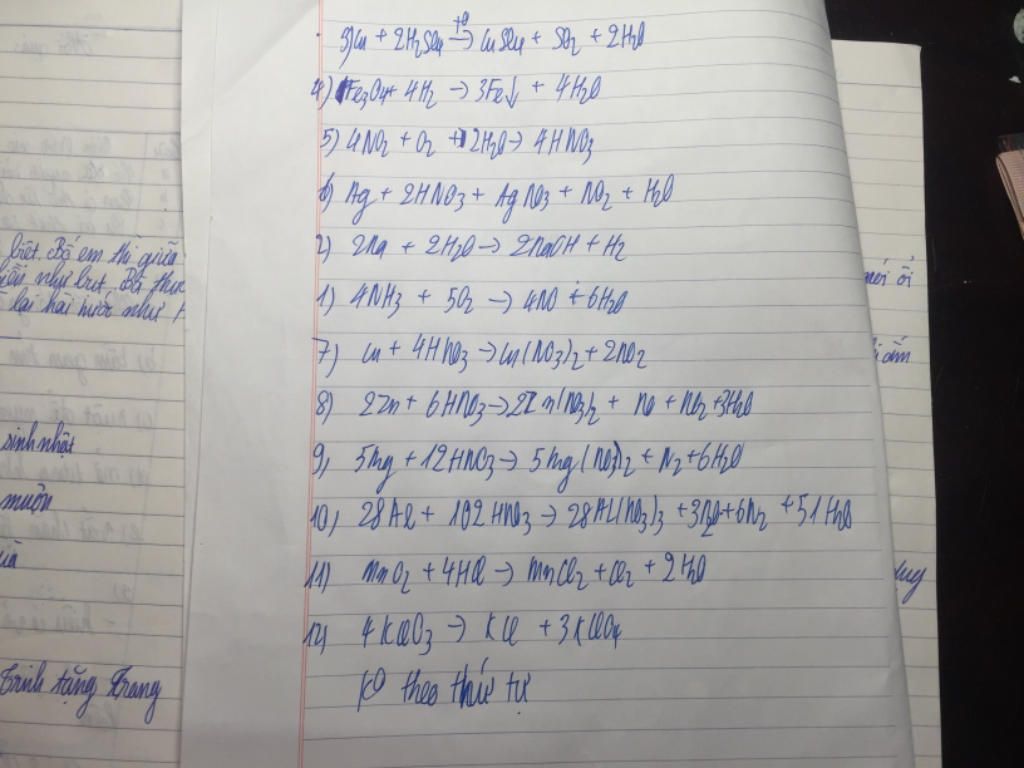 3) Cu + 2H₂SO₄ →(t⁰) CuSO₄ + SO₂ + 2H₂O
4) Fe₃O₄ + 4H₂ → 3Fe↓ + 4H₂O
5) 4NO₂ + O₂ + 2H₂O → 4HNO₃
6) Ag + 2HNO₃ + AgNO₃ + NO₂ + H₂O
2) 2Na + 2H₂O → 2NaOH + H₂
1) 4NH₃ + 5O₂ → 4NO + 6H₂O
7) Cu + 4HNO₃ → Cu(NO₃)₂ + 2NO₂
8) 2Zn + 6HNO₃ → 2Zn(NO₃)₂ + NO + NO₂ + 3H₂O
9) 5Mg + 12HNO₃ → 5Mg(NO₃)₂ + N₂ + 6H₂O
10) 28Al + 102HNO₃ → 28Al(NO₃)₃ + 3N₂O + 6N₂ + 51H₂O
11) MnO₂ + 4HCl → MnCl₂ + Cl₂ + 2H₂O
12) 4KClO₃ → KCl + 3KClO₄
theo thứ tự
biết. Bố em thì giữa
lại hai nước như
sinh nhật
muôn
Trinh tặng Trang